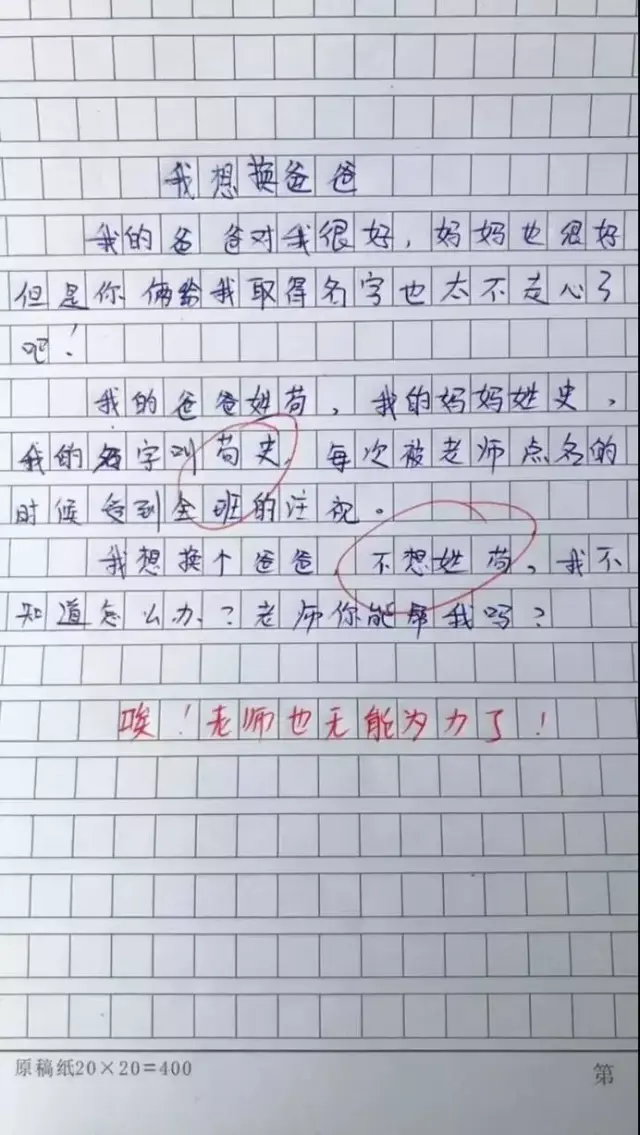 我想换爸爸
我的爸爸对我很好,妈妈也很好
但是你俩给我取得名字也太不走心了
吧!
我的爸爸姓苟,我的妈妈姓史,
我的名字叫苟史,每次被老师点名的
时候受到全班的注视。
我想换个爸爸,不想姓苟,我不
知道怎么办?老师你能帮我吗?
唉!老师也无能为力了!
原稿纸20×20=400
第